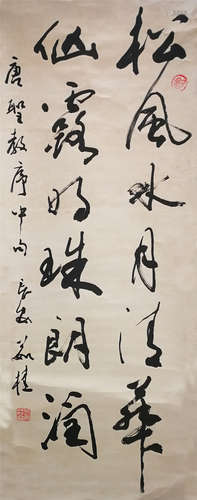 松風水月清華
仙露明珠朗潤
唐聖教序中句 長安茹桂